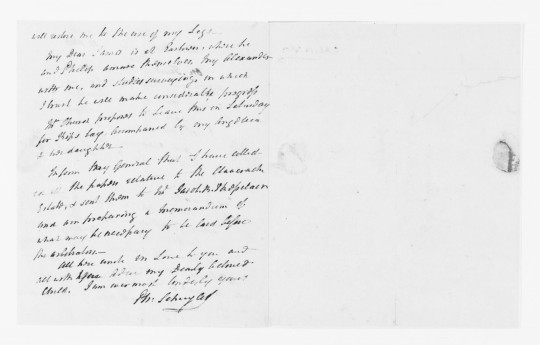 will restore me to the use of my Legs.
My Dear James is at Easton where he
and Philip amuse themselves, my Alexander
with me, and studies surveying in which
I trust he will make considerable progress
Mr Church proposes to Leave this on Saturday
for Ships bay, Accompanied by my Angelica
& her daughter.
Inform My General that I have collect
ed all the papers relative to the
Estate, & sent them to Mr Jacob
and am preparing a memorandum of
what may be necessary to be Laid before
the arbitrators —
All here unite in Love to you and
all with you Adieu my Dearly beloved
Child. I am ever most tenderly yours
Ph: Schuyler